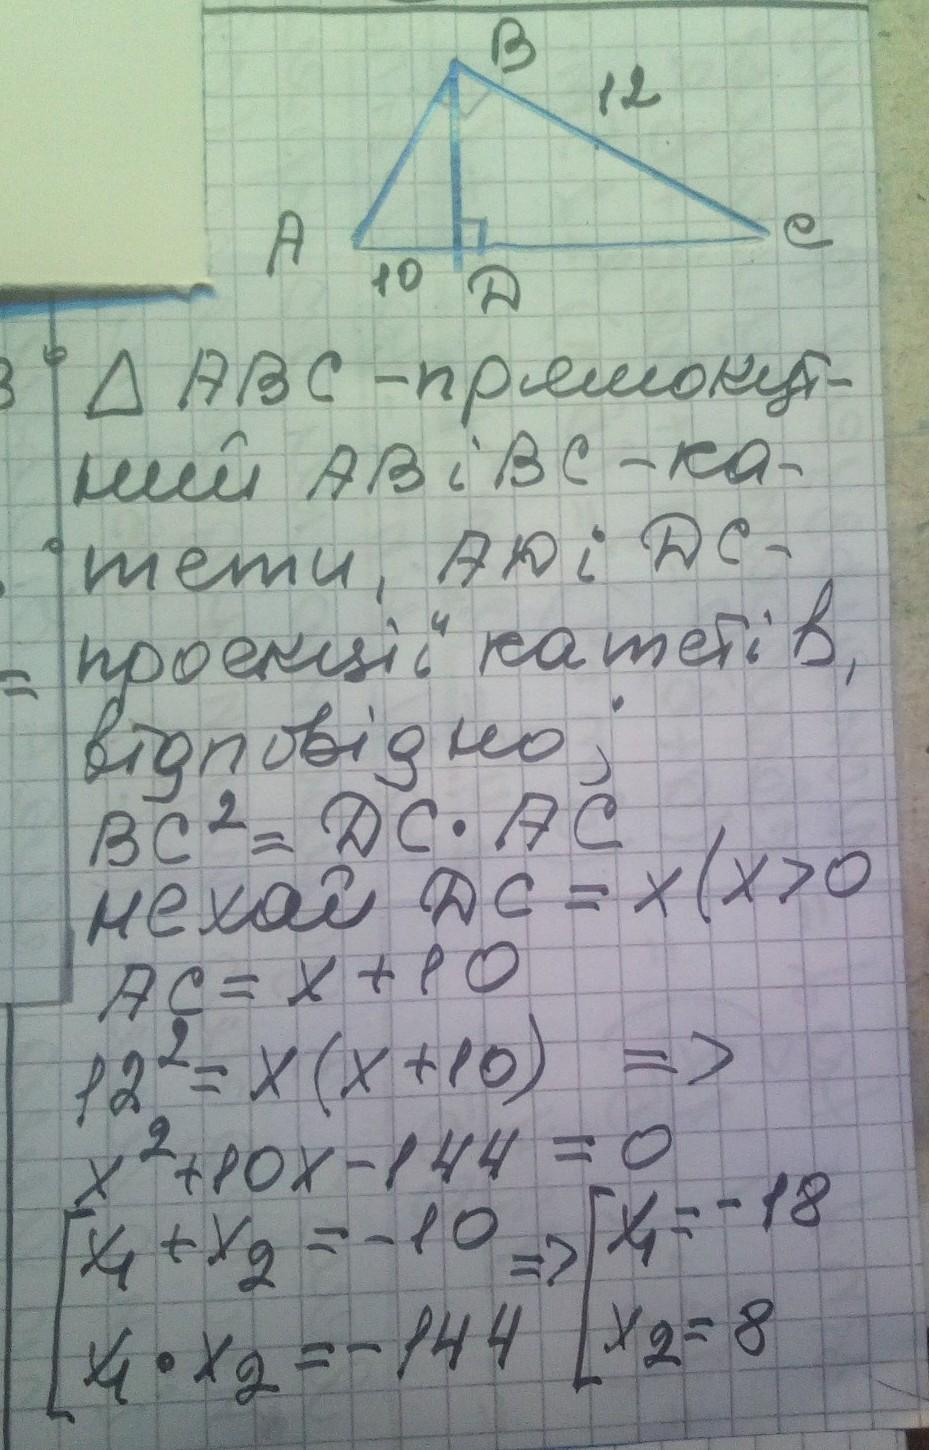 B
12
A
C
10
D
△ ABC - прямокут-
ний AB і BC - ка-
тети, AD і DC -
проекції катетів,
відповідно;
BC² = DC · AC
нехай DC = x (x>0
AC = x + 10
12² = x(x+10) =>
x² + 10x - 144 = 0
[x₁ + x₂ = -10 => [x₁ = -18
x₁ · x₂ = -144 x₂ = 8
=